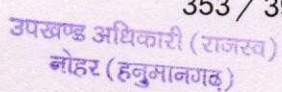 353 / 3
उपखण्ड अधिकारी (राजस्व)
नोहर (हनुमानगढ़)